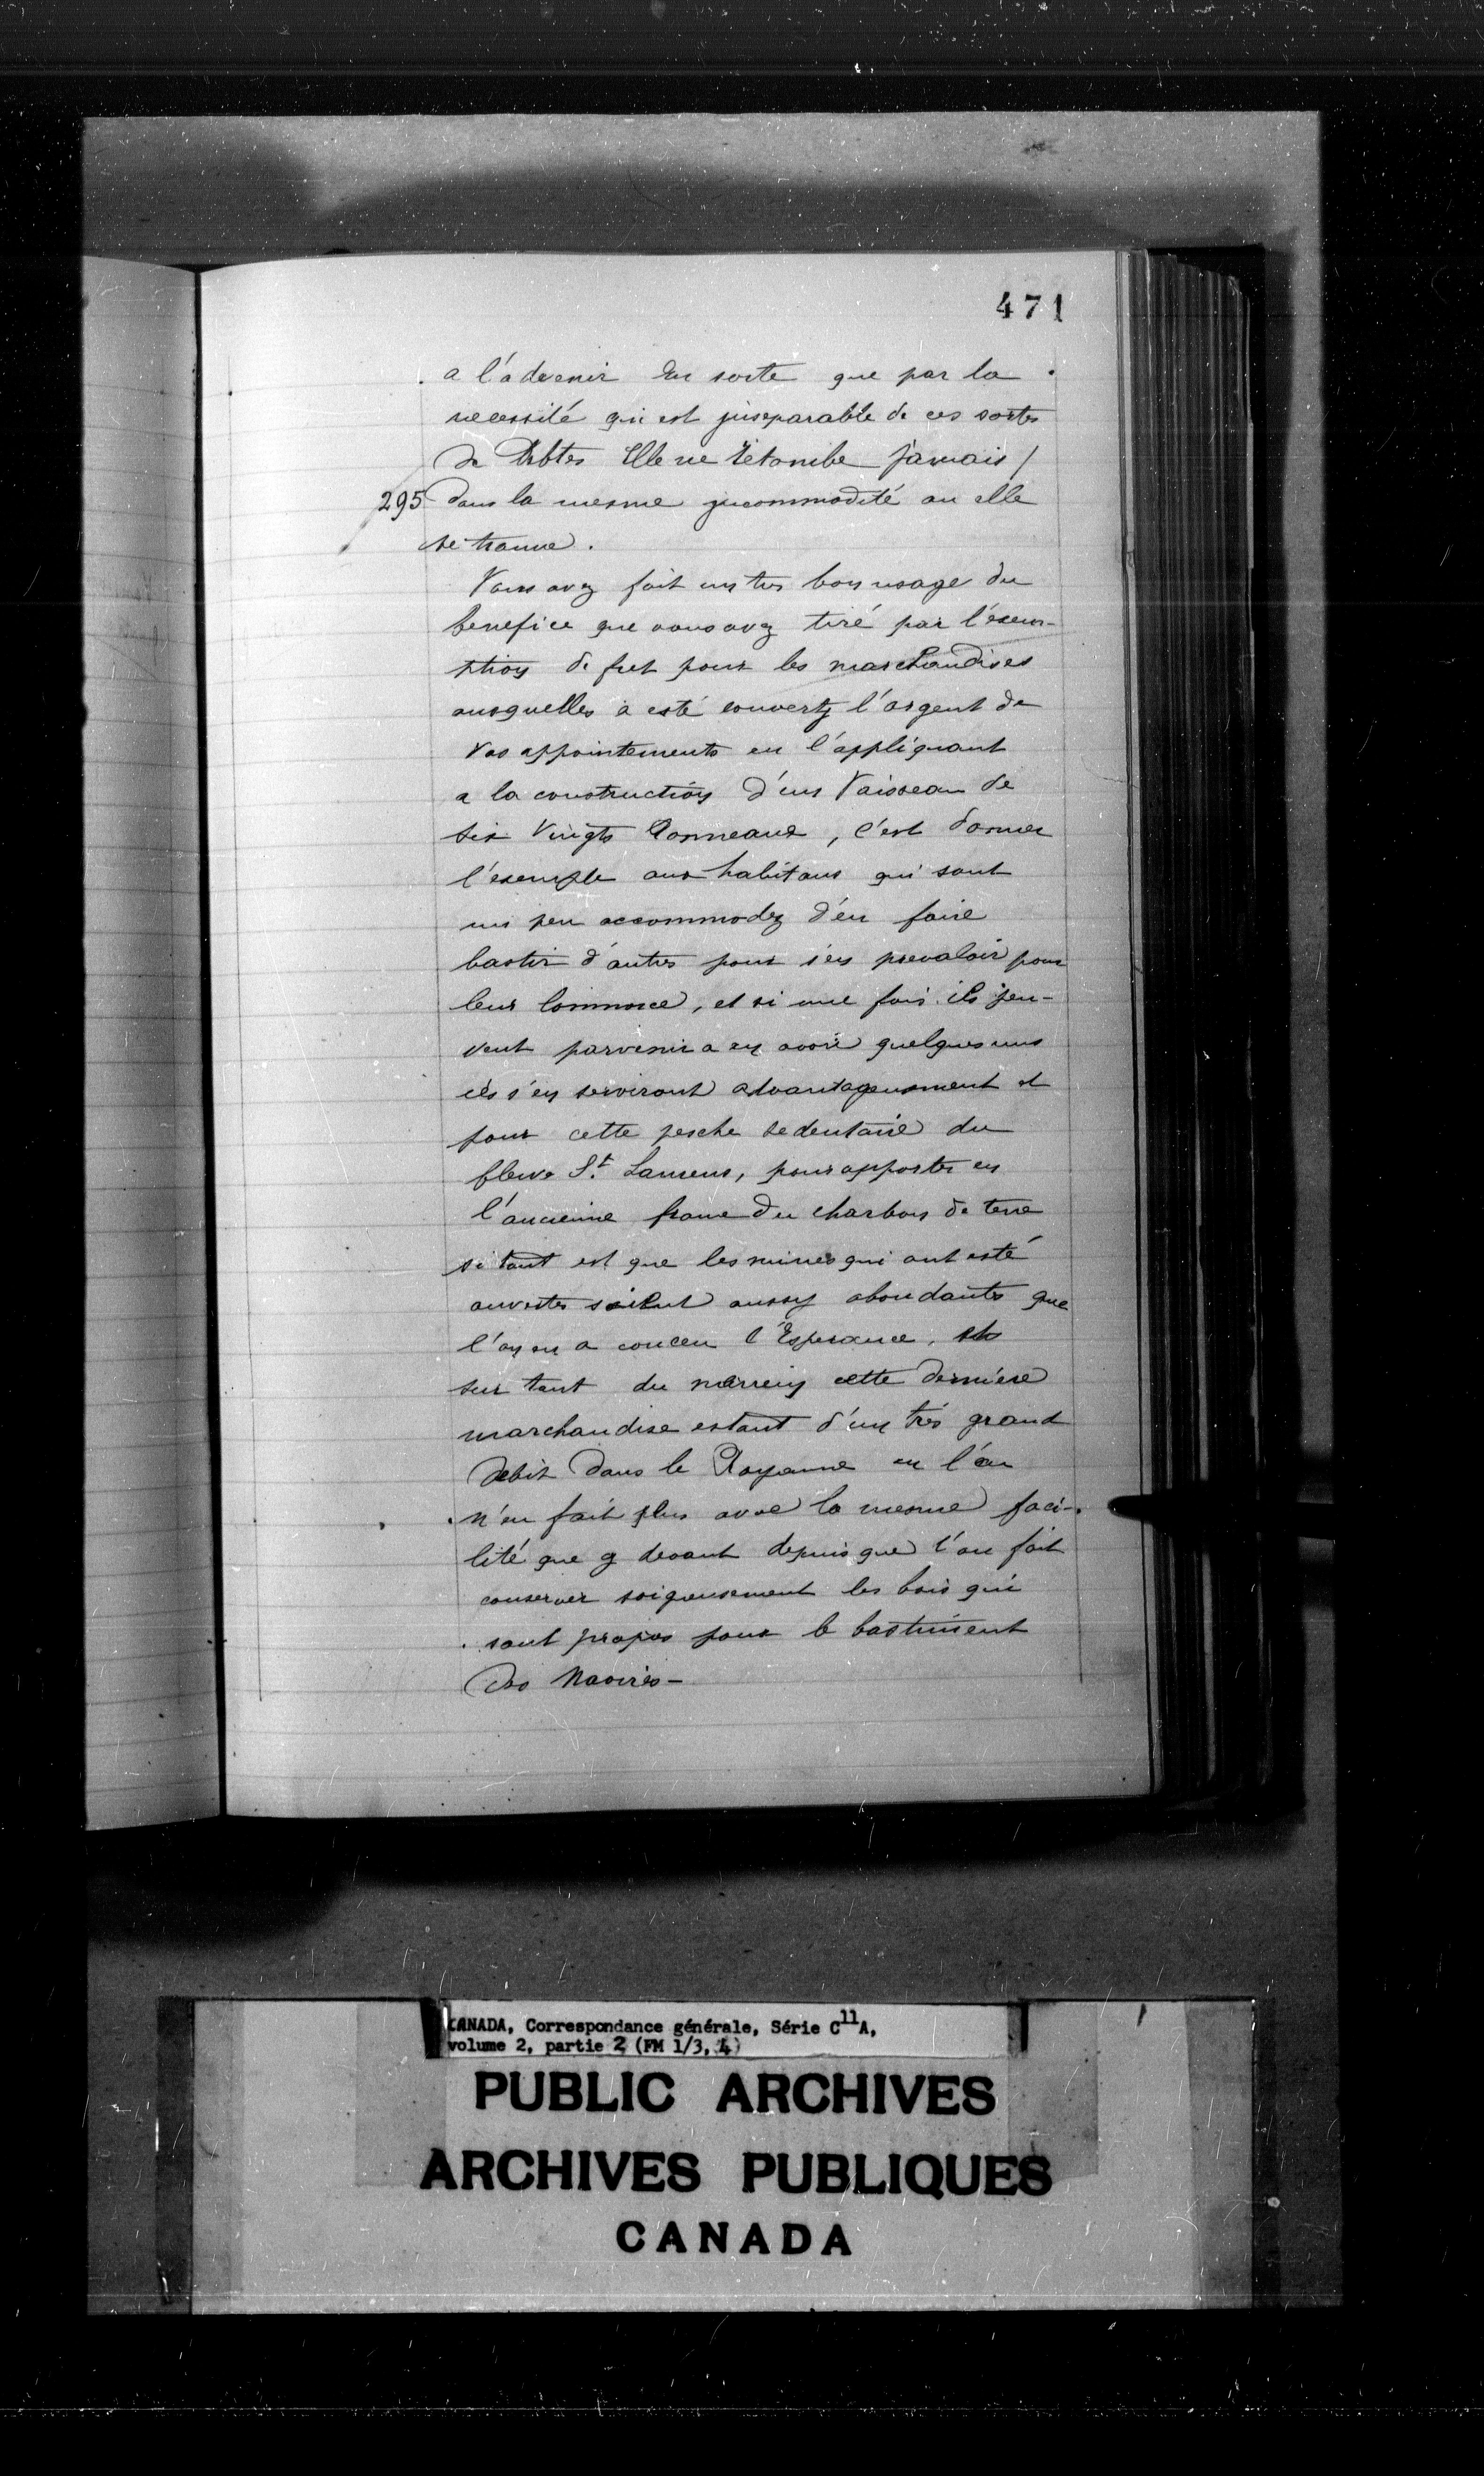 471
a l'advenir En sorte que par la
necessité qui est jnseparable de ces sortes
de Debtes Elle ne Retombe jamais /
295 dans la mesme jncommodité ou elle
se trouve.
Vous avez fait un tres bon usage du
benefice que vous avez tiré par l'exem-
ption de fret pour les marchandises
ausquelles a esté converty l'argent de
vos appointements en l'appliquant
a la construction d'un Vaisseau de
six Vingts Tonneaux, c'est donner
l'exemple aux habitans qui sont
un peu accommodez d'en faire
bastir d'autres pour s'en prevaloir pour
leur Commerce, et si une fois ils peu-
vent parvenir a en avoir quelques uns
ils s'en serviront advantageusement et
pour cette pesche sedentaire du
fleuve St. Laurens, pour apporter en
l'ancienne france du charbon de terre
si tant est que les mines qui ont esté
ouvertes soient aussy abondantes que
l'on en a conceu l'Esperance, et
sur tout du merrein cette derniere
marchandise estant d'un très grand
debit dans le Royaume ou l'on
n'en fait plus avec la mesme faci-
lité que cy devant depuis que l'on fait
conserver soigneusement les bois qui
sont propres pour le bastiment
des Navires -
CANADA, Correspondance générale, Série C11A,
volume 2, partie 2 (FM 1/3, 4)
PUBLIC ARCHIVES
ARCHIVES PUBLIQUES
CANADA